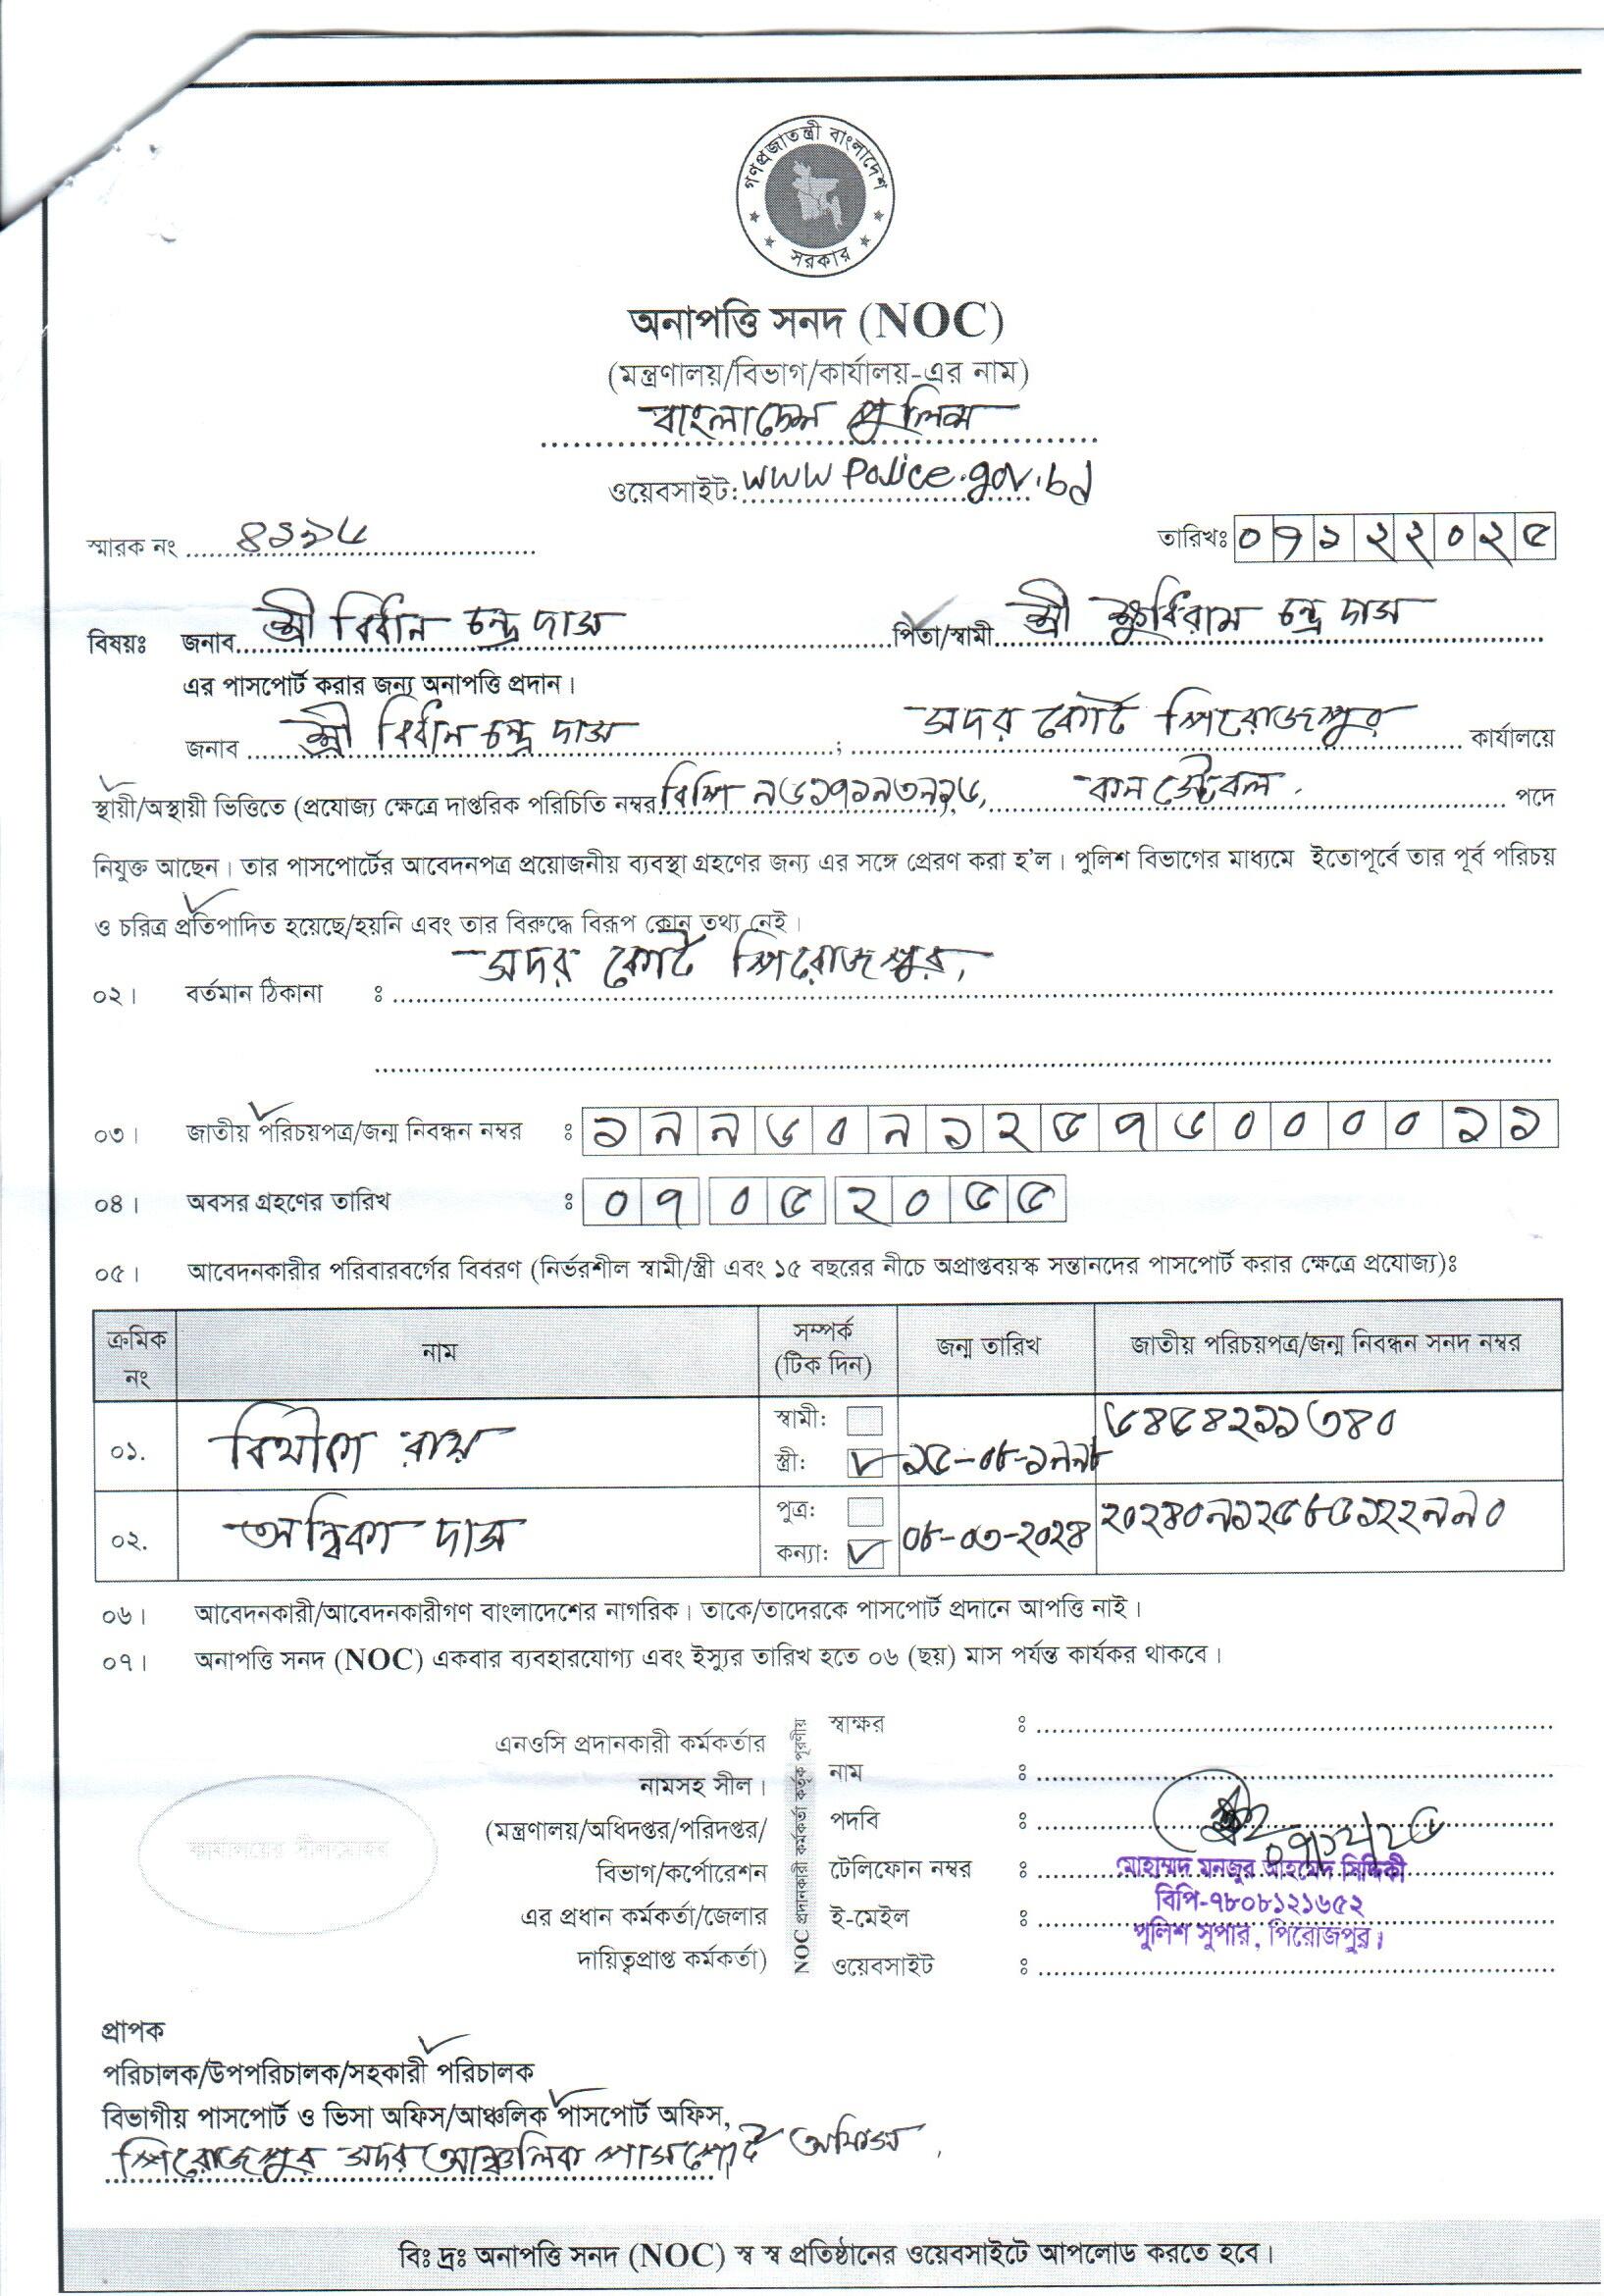 গণপ্রজাতন্ত্রী বাংলাদেশ
সরকার
অনাপত্তি সনদ (NOC)
(মন্ত্রণালয়/বিভাগ/কার্যালয়-এর নাম)
বাংলাদেশ পুলিশ
ওয়েবসাইট: www police.gov.bd
স্মারক নং ৪১৯৬
তারিখঃ ০৭১২২০২৫
বিষয়ঃ জনাব শ্রী বিধান চন্দ্র দাস পিতা/স্বামী শ্রী ক্ষুধিরাম চন্দ্র দাস
এর পাসপোর্ট করার জন্য অনাপত্তি প্রদান।
জনাব শ্রী বিধান চন্দ্র দাস ; সদর কোর্ট পিরোজপুর কার্যালয়ে
স্থায়ী/অস্থায়ী ভিত্তিতে (প্রযোজ্য ক্ষেত্রে দাপ্তরিক পরিচিতি নম্বর বিপি ৯৬১৭১৯৩৯২৬, কনস্টেবল পদে
নিযুক্ত আছেন। তার পাসপোর্টের আবেদনপত্র প্রয়োজনীয় ব্যবস্থা গ্রহণের জন্য এর সঙ্গে প্রেরণ করা হ'ল। পুলিশ বিভাগের মাধ্যমে ইতোপূর্বে তার পূর্ব পরিচয়
ও চরিত্র প্রতিপাদিত হয়েছে/হয়নি এবং তার বিরুদ্ধে বিরূপ কোন তথ্য নেই।
০২। বর্তমান ঠিকানা : সদর কোর্ট পিরোজপুর,
০৩। জাতীয় পরিচয়পত্র/জন্ম নিবন্ধন নম্বর : ১৯৯৬০৯১২৫৭৬০০০০১১
০৪। অবসর গ্রহণের তারিখ : ০৭ ০৫ ২০৫৫
০৫। আবেদনকারীর পরিবারবর্গের বিবরণ (নির্ভরশীল স্বামী/স্ত্রী এবং ১৫ বছরের নীচে অপ্রাপ্তবয়স্ক সন্তানদের পাসপোর্ট করার ক্ষেত্রে প্রযোজ্য)ঃ
ক্রমিক নং নাম সম্পর্ক (টিক দিন) জন্ম তারিখ জাতীয় পরিচয়পত্র/জন্ম নিবন্ধন সনদ নম্বর
০১. বিথীকা রায় স্বামী: স্ত্রী: ১৫-০৮-১৯৯৮ ৬৪৫৪২১১৩৪০
০২. অম্বিকা দাস পুত্র: কন্যা: ০৮-০৩-২০২৪ ২০২৪০৯১২৫৮৬১২২৯৯০
০৬। আবেদনকারী/আবেদনকারীগণ বাংলাদেশের নাগরিক। তাকে/তাদেরকে পাসপোর্ট প্রদানে আপত্তি নাই।
০৭। অনাপত্তি সনদ (NOC) একবার ব্যবহারযোগ্য এবং ইস্যুর তারিখ হতে ০৬ (ছয়) মাস পর্যন্ত কার্যকর থাকবে।
কার্যালয়ের সীলমোহর
এনওসি প্রদানকারী কর্মকর্তার
নামসহ সীল।
(মন্ত্রণালয়/অধিদপ্তর/পরিদপ্তর/
বিভাগ/কর্পোরেশন
এর প্রধান কর্মকর্তা/জেলার
দায়িত্বপ্রাপ্ত কর্মকর্তা)
NOC প্রদানকারী কর্মকর্তা কর্তৃক পূরণীয়
স্বাক্ষর :
নাম :
পদবি :
টেলিফোন নম্বর :
ই-মেইল :
ওয়েবসাইট :
মোহাম্মদ মনজুর আহমেদ সিদ্দিকী
বিপি-৭৮০৮১২১৬৫২
পুলিশ সুপার, পিরোজপুর।
প্রাপক
পরিচালক/উপপরিচালক/সহকারী পরিচালক
বিভাগীয় পাসপোর্ট ও ভিসা অফিস/আঞ্চলিক পাসপোর্ট অফিস,
পিরোজপুর সদর আঞ্চলিক পাসপোর্ট অফিস,
বিঃ দ্রঃ অনাপত্তি সনদ (NOC) স্ব স্ব প্রতিষ্ঠানের ওয়েবসাইটে আপলোড করতে হবে।